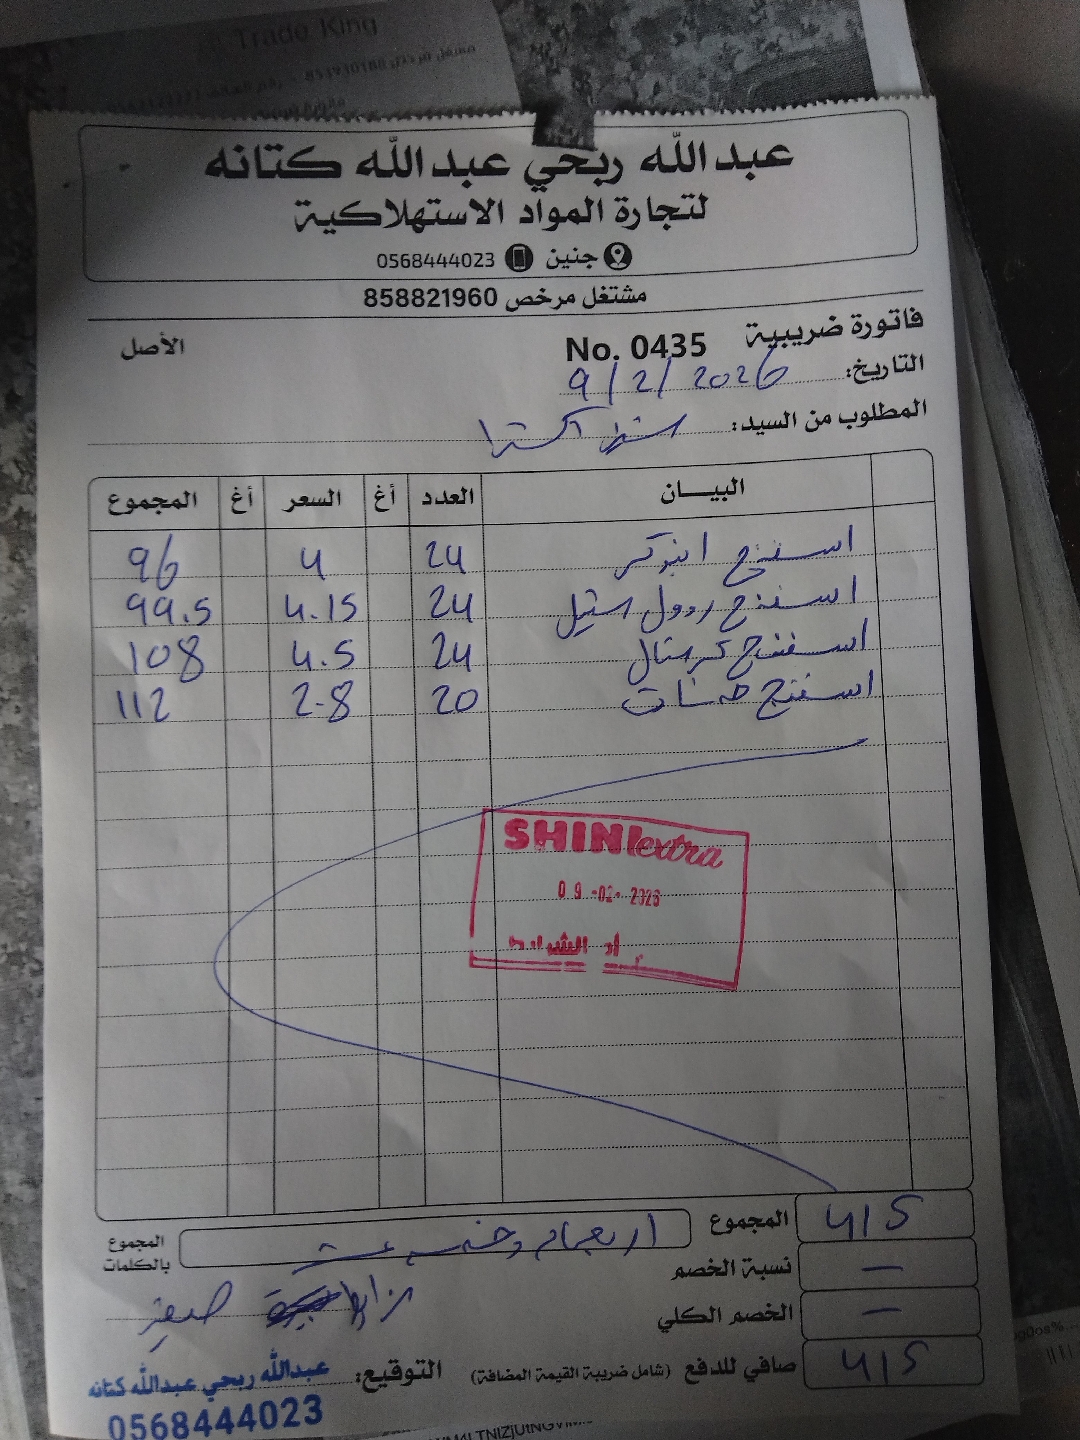 Trade King
عبدالله ربحي عبدالله كتانه
لتجارة المواد الاستهلاكية
جنين 0568444023
مشتغل مرخص 858821960
فاتورة ضريبية No. 0435 الأصل
التاريخ: 9/2/2026
المطلوب من السيد: اكسترا
البيـــان العدد أغ السعر أغ المجموع
اسفنج 24 4 96
اسفنج رول ستيل 24 4.15 99.5
اسفنج كرستال 24 4.5 108
اسفنج 20 2.8 112
SHINI extra
09-02-2026
المجموع 415
المجموع بالكلمات اربعماية وخمسة عشر
نسبة الخصم —
الخصم الكلي —
صافي للدفع (شامل ضريبة القيمة المضافة) 415
التوقيع:
عبدالله ربحي عبدالله كتانه
0568444023